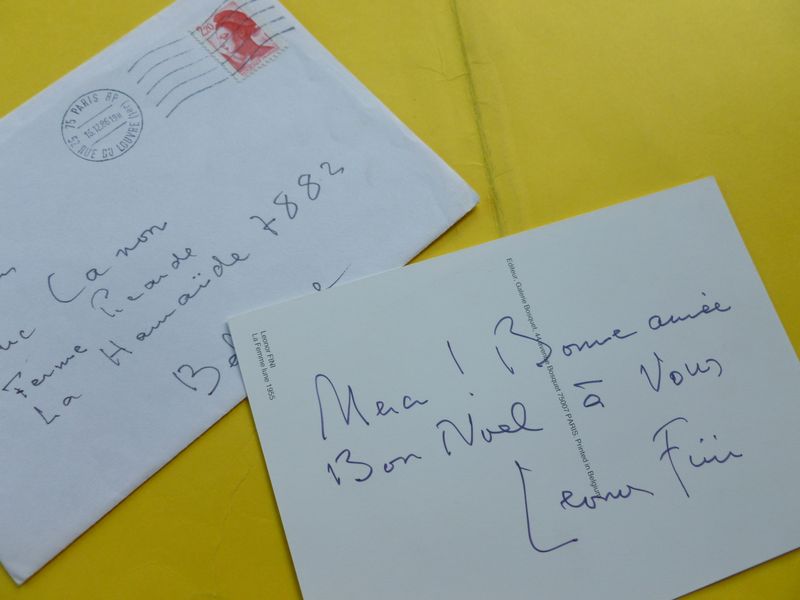 2,20
75 PARIS RP (
15.12.86 19H
52 RUE DU LOUVRE
Canon
Ferme Picarde
La Hamaïde 7882
Leonor FINI
La Femme lune 1955
Editeur: Galerie Bosquet, 44 avenue Bosquet 75007 PARIS. Printed in Belgium
Merci ! Bonne année
Bon Noël à Vous
Leonor Fini